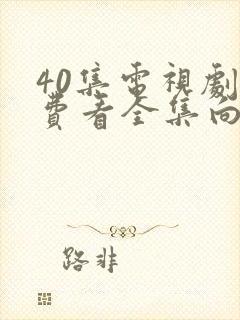 40集電視劇
費看全集向
路非